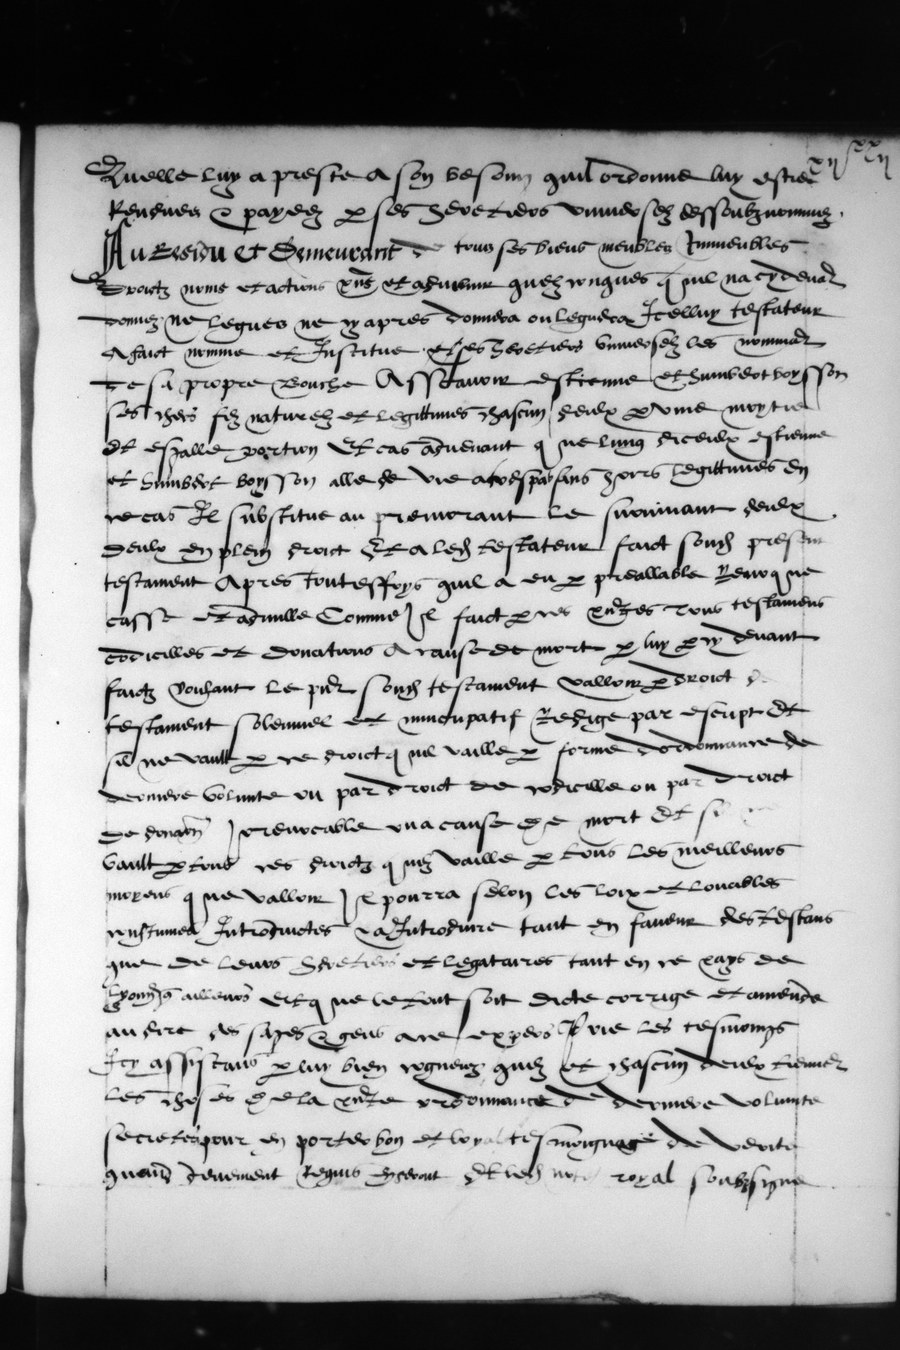 Quelle luy a preste a son besoing quil ordonne luy estre
Rendues & payez p ses heretiers universelz dessoubznommez.
Au Residu Et Demeurant de tous ses biens meubles Immeubles
Droictz noms et actions pns et advenir quelzconques q quil na cy devat
donnez ne leguez ne cy apres donnera ou leguera Icelluy testateur
A faict nomme et Institue et ses heretiers universelz les nommat
De sa propre Bouche Assavoir estienne et humbert boysson
ses chers filz naturelz et legittimes chascun deulx p une moytie
Et esgalle portion Et cas advenant q ne lung diceulx estienne
et humbert boysson alle de vie a trespas sans hoirs legittimes En
ce cas Il substitue au premorant le survivant deulx
Deulx en plein droict Et a led testateur faict sond present
testament Apres touteffoys quil a eu p preallable Revocque
casse et adnulle Comme Il faict p ces pntes tous testamens
codicilles et donations A cause de mort p luy p cy devant
faictz Voulant le pnt sond testament valloir p droict de
testament solennel et nuncupatif Redige par escript Et
sil ne vault p ce droict q quil vaille p forme dordonnance de
derniere volunte ou par droict de codicille ou par droict
De donaon Irrevocable a cause de mort Et si ne
vault p tous ces droictz q quil vaille p tous les meilleurs
moyens q ne valloir Il pourra selon les loix et louables
coustumes Introductes & a Introduire tant en faveur des testans
que de leurs heretiers et legataires tant en ce pays de
lyonn q ailleurs Et q ne le tout soit dicte corrige et amende
au dire des sages & gens a ce expers Prie les tesmoings
Icy assistans p luy bien cogneuz quilz et chascun deulx tiennet
les choses de la pnte ordonnance de derniere volunte
secretes pour en porter bon et loyal tesmoignage de verite
quand Deuement Requis en seront Et led not royal soubzsigne